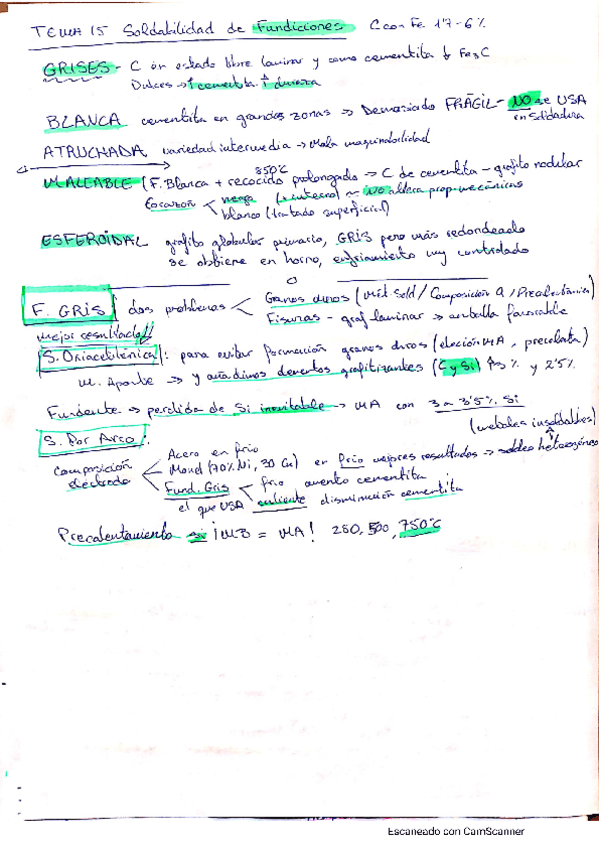 TEMA 15 Soldabilidad de Fundiciones C con Fe 1'7-6%
GRISES - C en estado libre laminar y como cementita Fe3C
Dulces → ↑cementita ↑ dureza
BLANCA cementita en grandes zonas → Demasiado FRÁGIL - NO se USA
en soldadura
ATRUCHADA, variedad intermedia → Mala maquinabilidad
850ºC
MALEABLE (F. Blanca + recocido prolongado → C de cementita - grafito nodular
Corazón < negro (+ interno) NO altera prop. mecánicas
blanco (tratado superficial)
ESFEROIDAL grafito globular primario, GRIS pero más redondeado
se obtiene en horno, enfriamiento muy controlado
F. GRIS dos problemas < Granos duros (Mét. Sold / Composición / Precalentamiento)
Fisuras - graf laminar → entalla favorable
mejor resultado!!
S. Oxiacetilénica: para evitar formación granos duros (elección MA, precalent)
M. Aporte → y añadimos elementos grafitizantes (C y Si) 3% y 2'5%
Fundente → perdida de Si inevitable → MA con 3 a 3'5% Si
(metales insoldables)
S. Por Arco:
Composición electrodo < Acero en frio
Monel (70% Ni, 30 Cu) en frio mejores resultados → soldeo heterogéneo
Fund. Gris < frio aumento cementita
el que USA caliente disminución cementita
Precalentamiento si ¡MB = MA! 250, 500, 750ºC
Escaneado con CamScanner